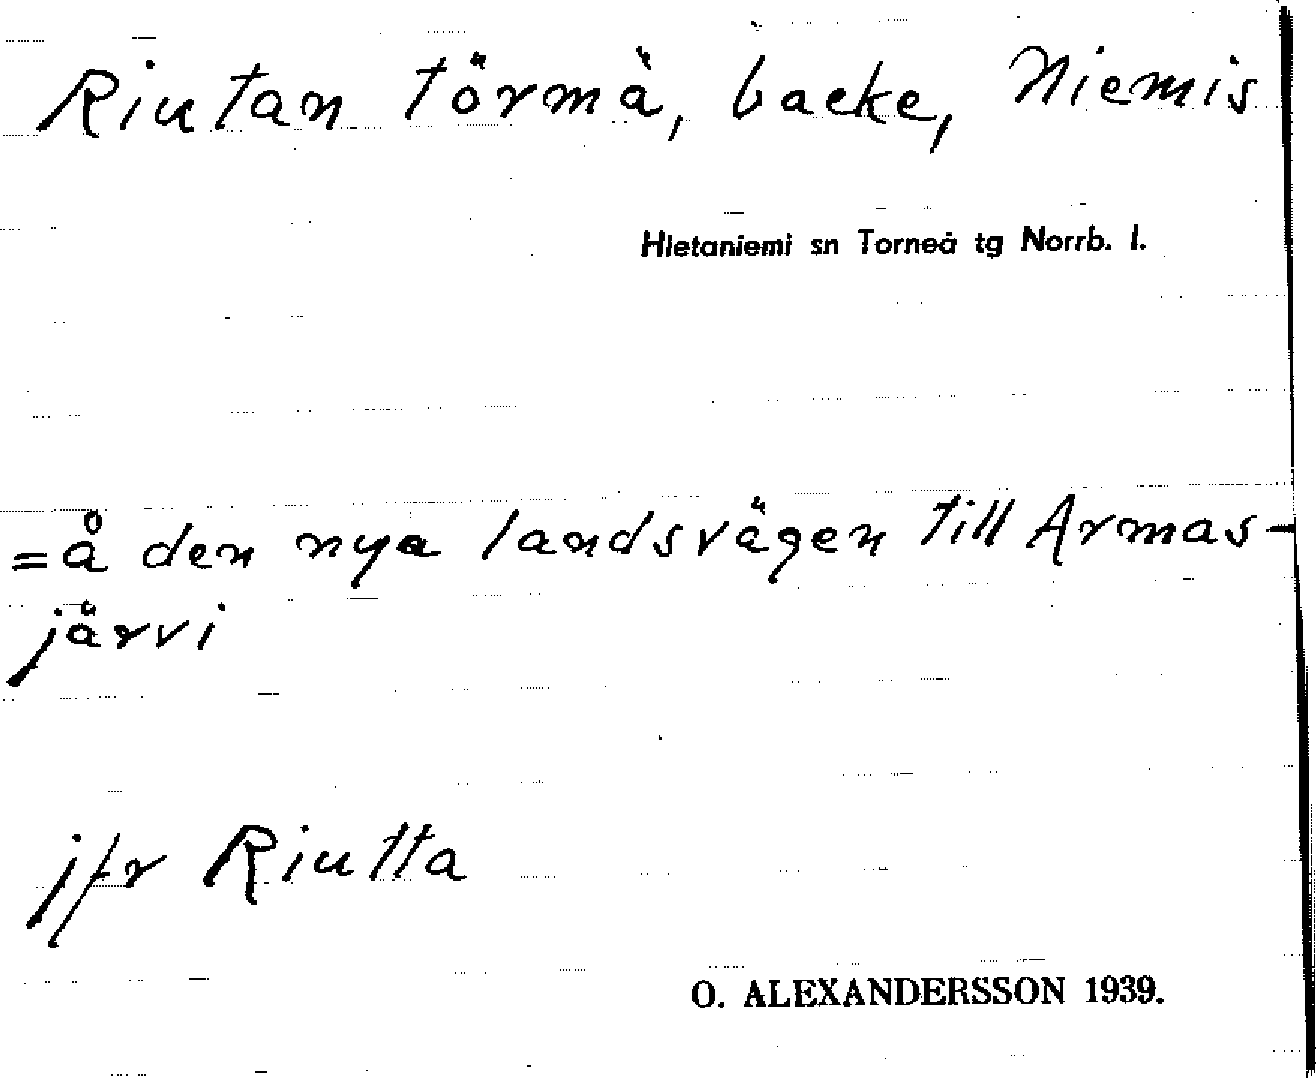 Riutan törmä, backe, Niemis
Hietaniemi sn Torneå tg Norrb. l.
= å den nya landsvägen till Armas-
järvi
jfr Riutta
O. ALEXANDERSSON 1939.